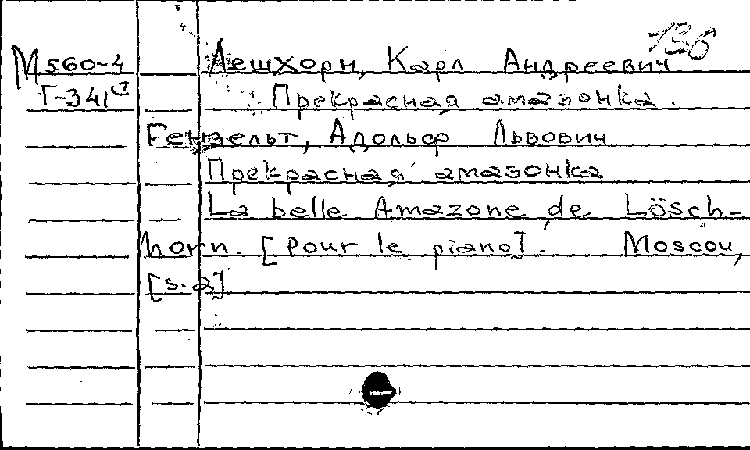 136
М 560-4 Лешхорн, Карл Андреевич
Т-341 Прекрасная амазонка.
Гензельт, Адольф Львович
Прекрасная амазонка
La belle Amazone de Lösch-
horn. [Pour le piano]. Moscou,
[s.a]